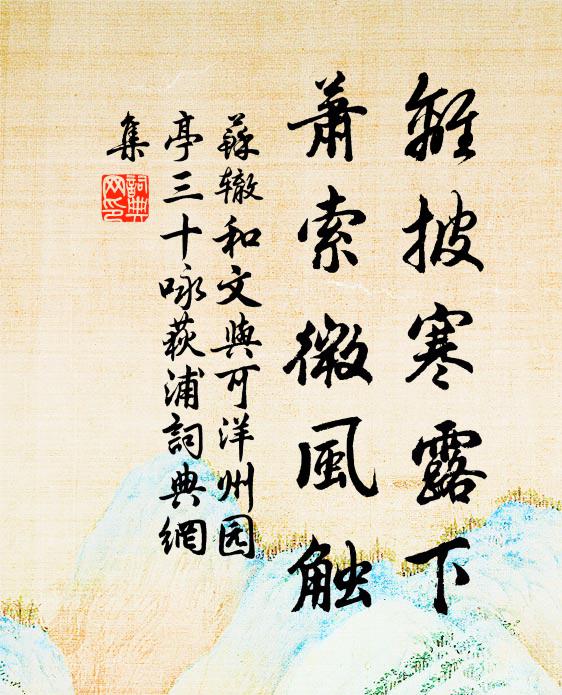 離披寒露下
蕭索微風触
蘇辙和文與可洋州园
亭三十咏荻浦詞典網
集
詞典
网印